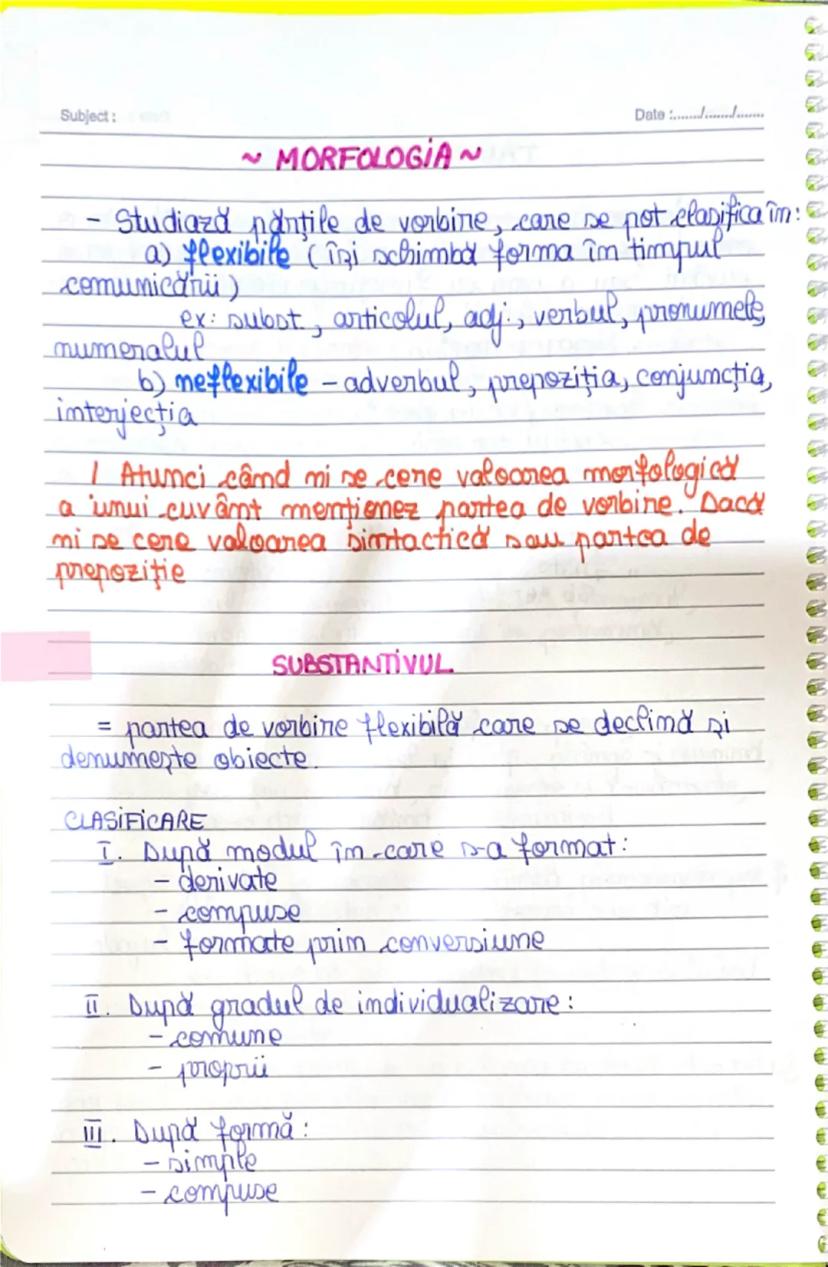 Subject:
Date:....../....../......
~ MORFOLOGIA ~
- Studiază părțile de vorbire, care se pot clasifica în:
a) flexibile ( își schimbă forma în timpul
comunicării )
ex: subst., articolul, adj., verbul, pronumele,
numeralul
b) neflexibile - adverbul, prepoziția, conjuncția,
interjecția
! Atunci când mi se cere valoarea morfologică
a unui cuvânt menționez partea de vorbire. Dacă
mi se cere valoarea sintactică sau partea de
prepoziție
SUBSTANTIVUL
= partea de vorbire flexibilă care se declină și
denumește obiecte.
CLASIFICARE
I. După modul în care s-a format:
- derivate
- compuse
- formate prin conversiune
II. După gradul de individualizare:
- comune
- proprii
III. După formă:
- simple
- compuse